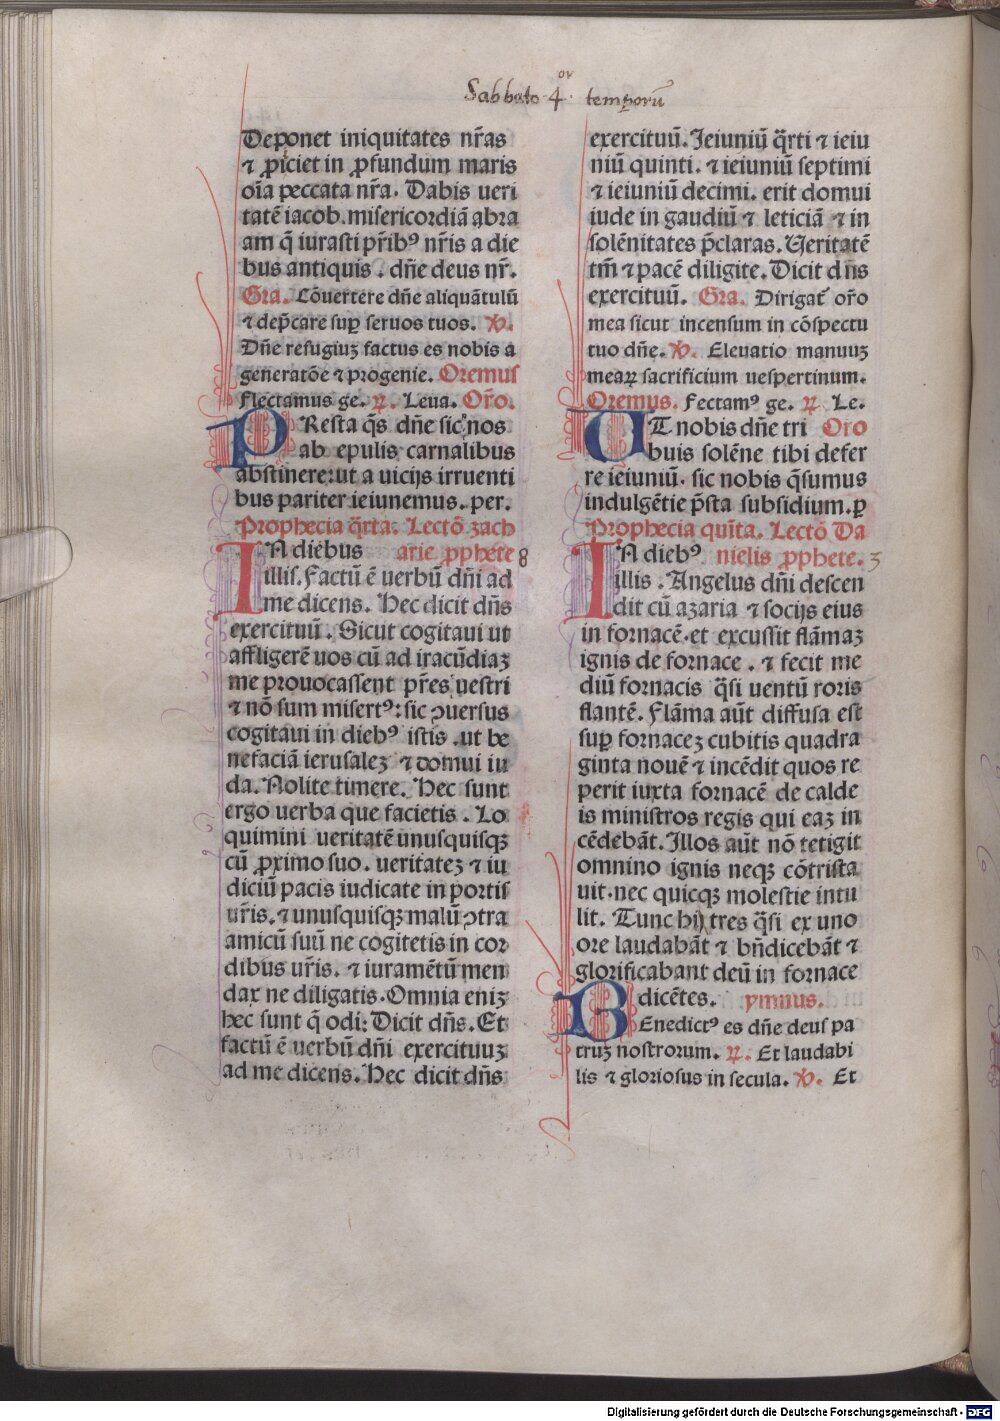 Sabbato 4or temporū
Deponet iniquitates nr̄as
⁊ ꝓiciet in ꝓfundum maris
oīa peccata nr̄a. Dabis ueri
tatē iacob. misericordiā abra
am q̄ iurasti pr̄ibꝰ nr̄is a die
bus antiquis. dn̄e deus nr̄.
Gra. Cōuertere dn̄e aliquātulū
⁊ dep̄care suꝑ seruos tuos. ℣.
Dn̄e refugiuꝫ factus es nobis a
generatōe ⁊ progenie. Oremus
flectamus ge. ℟. Leua. Or̄o.
PResta q̄s dn̄e sic nos
ab epulis carnalibus
abstinere: ut a uicijs irruenti
bus pariter ieiunemus. per.
Prophecia q̄rta. Lectō zach
IN diebus arie ꝓphete 8
illis. Factū ē uerbū dn̄i ad
me dicens. Hec dicit dn̄s
exercituū. Sicut cogitaui ut
affligerē uos cū ad iracūdiaꝫ
me prouocassent pr̄es uestri
⁊ nō sum misertꝰ: sic ↄuersus
cogitaui in diebꝰ istis. ut be
nefaciā ierusaleꝫ ⁊ domui iu
da. Nolite timere. Hec sunt
ergo uerba que facietis. Lo
quimini ueritatē unusquisqꝫ
cū ꝓximo suo. ueritateꝫ ⁊ iu
diciū pacis iudicate in portis
ur̄is. ⁊ unusquisqꝫ malū ↄtra
amicū suū ne cogitetis in cor
dibus ur̄is. ⁊ iuramētū men
dax ne diligatis. Omnia eniꝫ
hec sunt q̄ odi: Dicit dn̄s. Et
factū ē uerbū dn̄i exercituuꝫ
ad me dicens. Hec dicit dn̄s
exercituū. Ieiuniū q̄rti ⁊ ieiu
niū quinti. ⁊ ieiuniū septimi
⁊ ieiuniū decimi. erit domui
iude in gaudiū ⁊ leticiā ⁊ in
solēnitates p̄claras. Ueritatē
tm̄ ⁊ pacē diligite. Dicit dn̄s
exercituū. Gra. Dirigat̄ or̄o
mea sicut incensum in cōspectu
tuo dn̄e. ℣. Eleuatio manuuꝫ
meaꝝ sacrificium uespertinum.
Oremus. Fectamꝰ ge. ℟. Le.
UT nobis dn̄e tri Oro
buis solēne tibi defer
re ieiuniū. sic nobis q̄sumus
indulgētie p̄sta subsidium. ꝑ
Prophecia quīta. Lectō Da
IN diebꝰ nielis ꝓphete. 3
illis. Angelus dn̄i descen
dit cū azaria ⁊ socijs eius
in fornacē. et excussit flāmaꝫ
ignis de fornace. ⁊ fecit me
diū fornacis q̄si uentū roris
flantē. Flāma aūt diffusa est
suꝑ fornaceꝫ cubitis quadra
ginta nouē ⁊ incēdit quos re
perit iuxta fornacē de calde
is ministros regis qui eaꝫ in
cēdebāt. Illos aūt nō tetigit
omnino ignis neqꝫ cōtrista
uit. nec quicqꝫ molestie intu
lit. Tunc hij tres q̄si ex uno
ore laudabāt ⁊ bn̄dicebāt ⁊
glorificabant deū in fornace
dicētes. ymnus.
BEnedictꝰ es dn̄e deus pa
truꝫ nostrorum. ℟. Et laudabi
lis ⁊ gloriosus in secula. ℣. Et
Digitalisierung gefördert durch die Deutsche Forschungsgemeinschaft - DFG